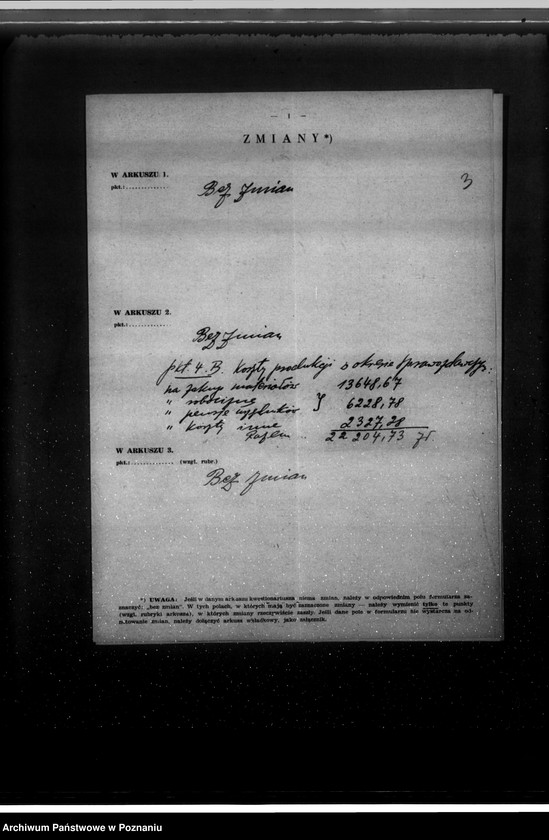 — 1 —
ZMIANY*)
3
W ARKUSZU 1.
pkt.:..............
Bez zmian
W ARKUSZU 2.
pkt.:.............
Bez zmian
pkt 4. B. Koszty produkcji w okresie sprawozdawczym:
na zakup materiałów 13648,67
" robociznę
" pensje urzędników } 6228,78
" koszty inne 2327,28
Razem 22 204,73 zł.
W ARKUSZU 3.
pkt.:.............. (wzgl. rubr.)
Bez zmian
*) UWAGA: Jeśli w danym arkuszu kwestionariusza niema zmian, należy w odpowiedniem polu formularza za-
znaczyć: „bez zmian". W tych polach, w których mają być zaznaczone zmiany — należy wymienić tylko te punkty
(wzgl. rubryki arkusza), w których zmiany rzeczywiście zaszły. Jeśli dane pole w formularzu nie wystarcza na od-
notowanie zmian, należy dołączyć arkusz wkładkowy, jako załącznik.
Archiwum Państwowe w Poznaniu